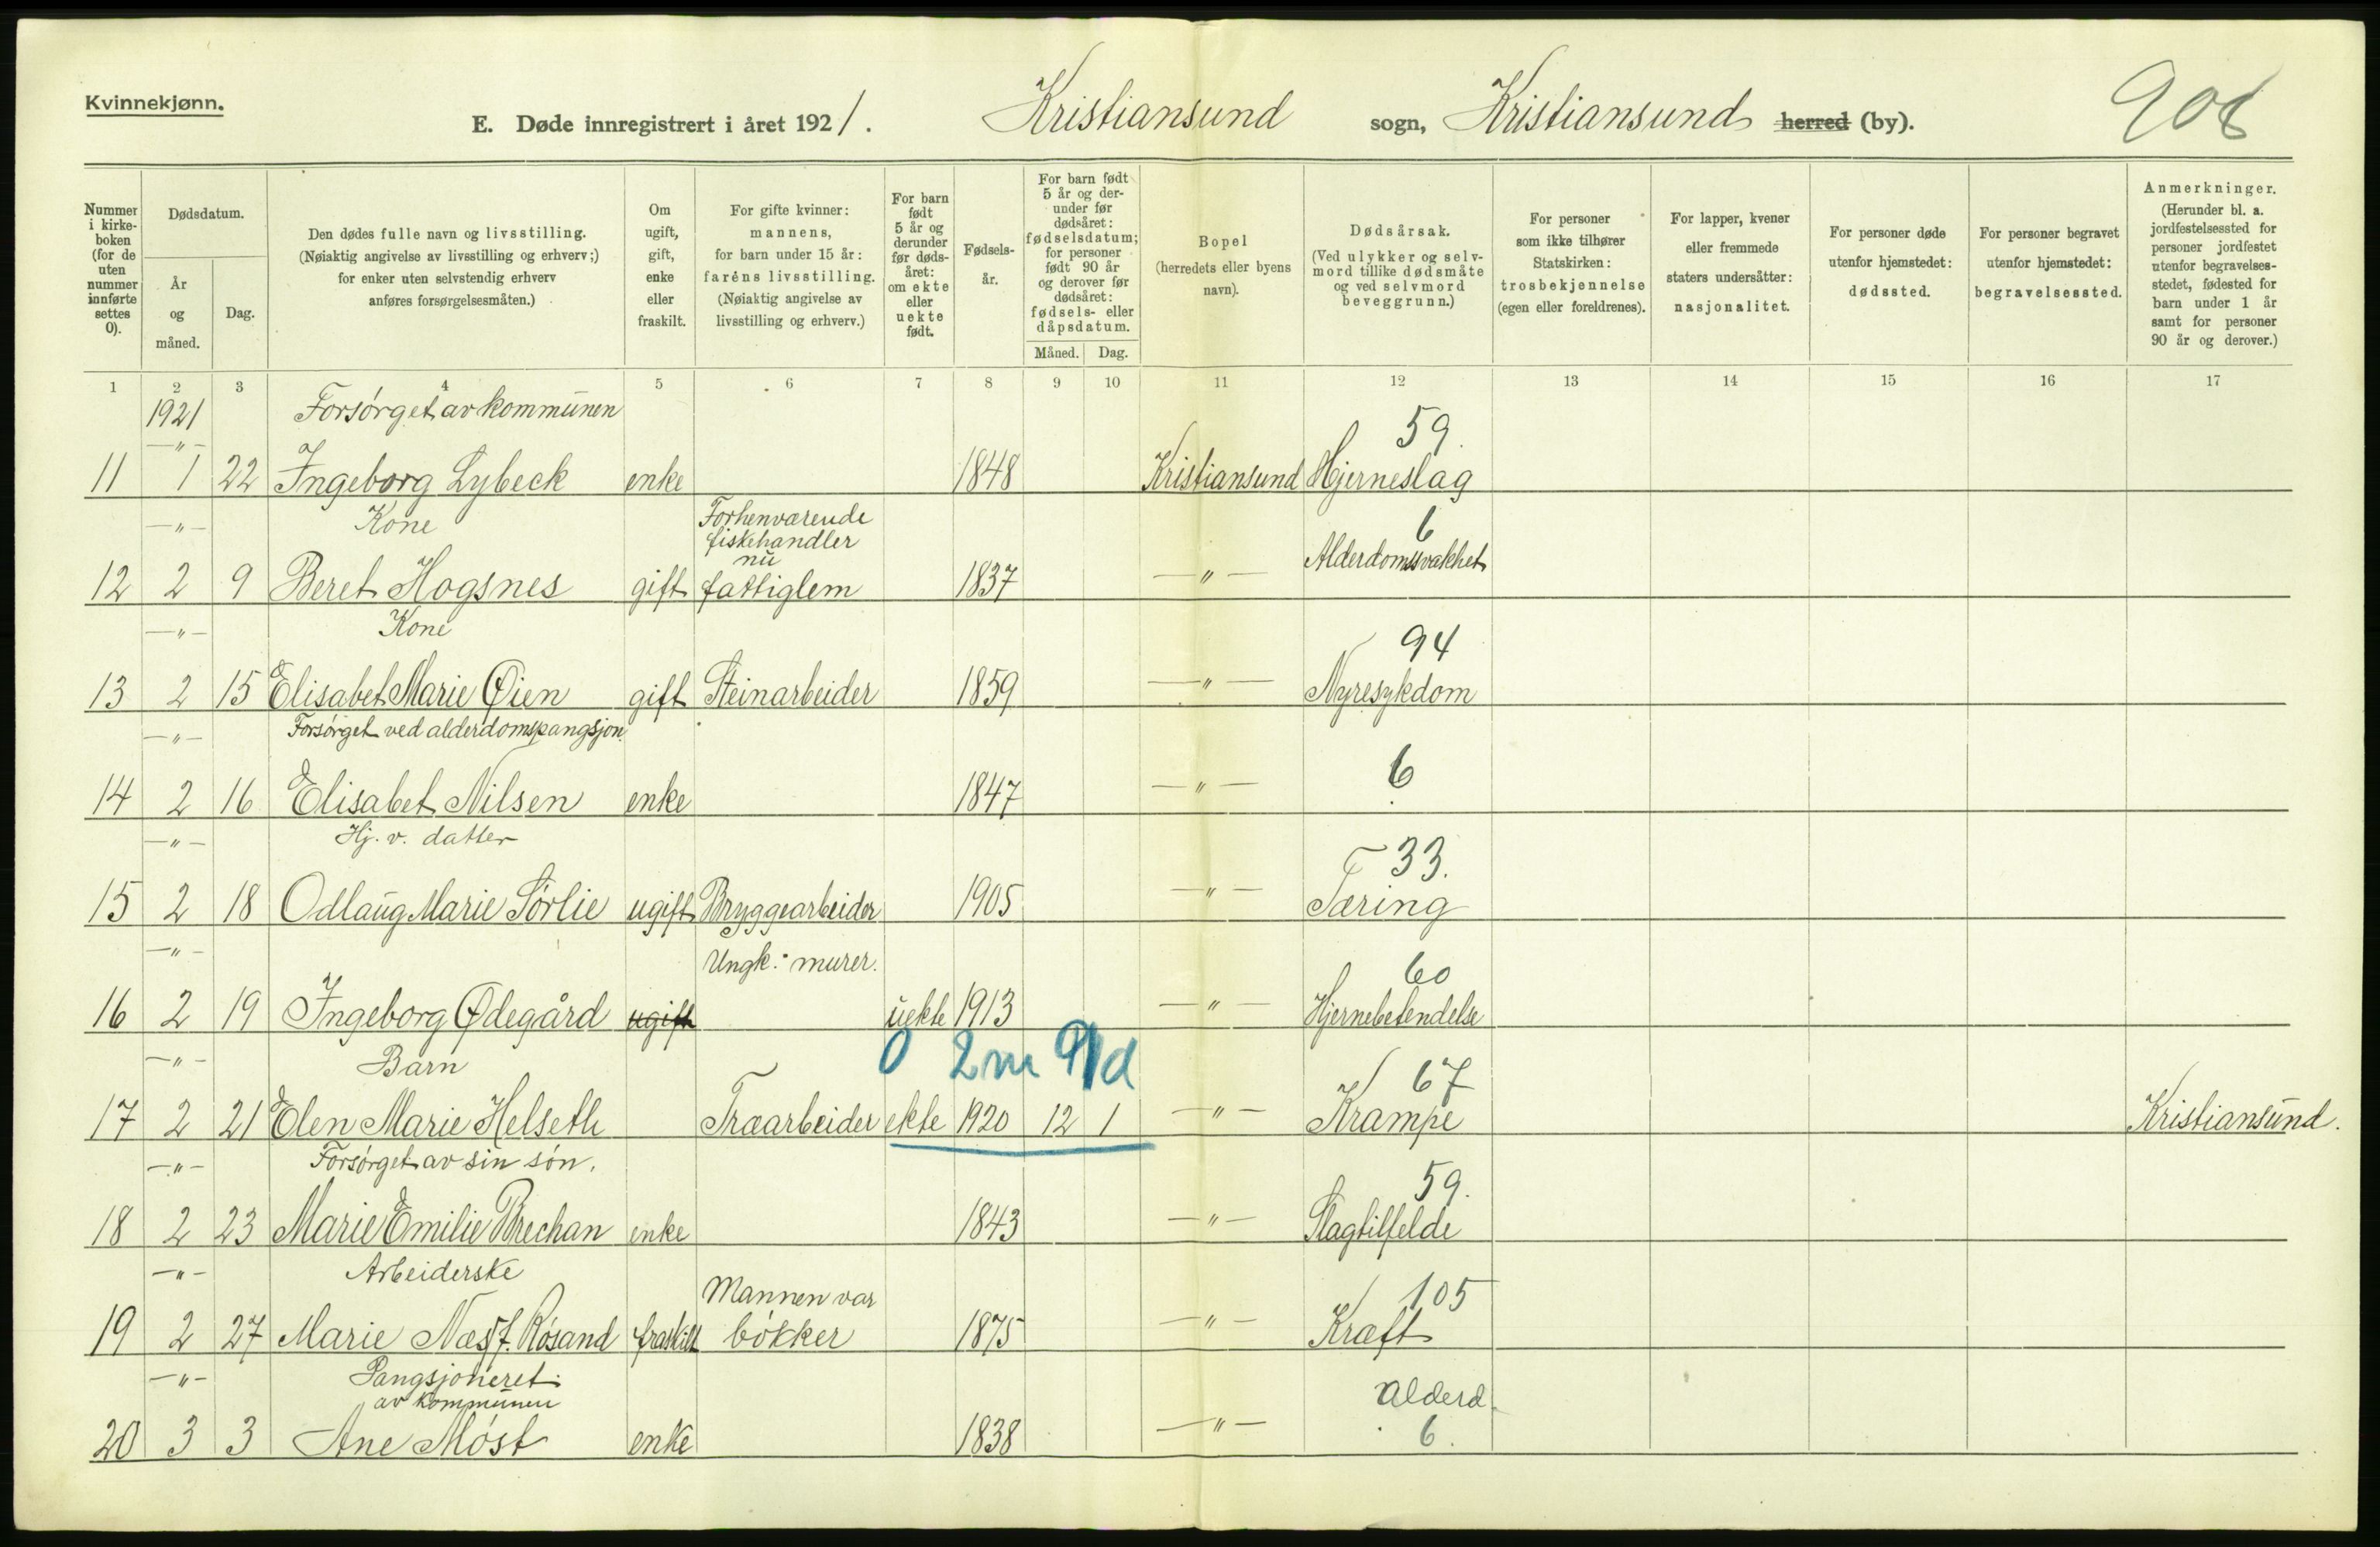 Kvinnekjønn.
E. Døde innregistrert i året 1921. Kristiansund sogn, Kristiansund herred (by). 906
Nummer i kirkeboken (for de uten nummer innførte settes 0).
Dødsdatum.
År og måned.
Dag.
Den dødes fulle navn og livsstilling.
(Nøiaktig angivelse av livsstilling og erhverv;)
for enker uten selvstendig erhverv
anføres forsørgelsesmåten.)
Om ugift, gift, enke eller fraskilt.
For gifte kvinner:
mannens,
for barn under 15 år:
farens livsstilling.
(Nøiaktig angivelse av
livsstilling og erhverv.)
For barn født 5 år og derunder før dødsåret: om ekte eller uekte født.
Fødselsår.
For barn født 5 år og derunder før dødsåret: fødselsdatum; for personer født 90 år og derover før dødsåret: fødsels- eller dåpsdatum.
Måned. Dag.
Bopel
(herredets eller byens
navn).
Dødsårsak.
(Ved ulykker og selvmord tillike dødsmåte
og ved selvmord
beveggrunn.)
For personer
som ikke tilhører
Statskirken:
trosbekjennelse
(egen eller foreldrenes).
For lapper, kvener
eller fremmede
staters undersåtter:
nasjonalitet.
For personer døde
utenfor hjemstedet:
dødssted.
For personer begravet
utenfor hjemstedet:
begravelsessted.
Anmerkninger.
(Herunder bl. a.
jordfestelsessted for
personer jordfestet
utenfor begravelses-
stedet, fødested for
barn under 1 år
samt for personer
90 år og derover.)
1 2 3 4 5 6 7 8 9 10 11 12 13 14 15 16 17
1921 Forsørget av kommunen 59.
—"—
11 1 22 Ingeborg Lybeck enke 1848 Kristiansund Hjerneslag
—"— Kone Forhenværende fiskehandler nu 6
12 2 9 Beret Hogsnes gift fattiglem 1837 —"— Alderdomssvakhet
—"— Kone 94
13 2 15 Elisabet Marie Øien gift Steinarbeider 1859 —"— Nyresykdom
—"— Forsørget ved alderdomspangsjon
14 2 16 Elisabet Nilsen enke 1847 —"— 6
—"— Hj. v. datter 33.
15 2 18 Odlaug Marie Sørlie ugift Bryggearbeider 1905 —"— Tæring
—"— Ungk.: murer. 60
16 2 19 Ingeborg Ødegård ugift uekte 1913 —"— Hjernebetendelse
0 2m 9d
—"— Barn 67
17 2 21 Elen Marie Helseth Træarbeider ekte 1920 12 1 —"— Krampe Kristiansund.
—"— Forsørget av sin søn. 59.
18 2 23 Marie Emilie Brechan enke 1843 —"— Slagtilfelde
—"— Arbeiderske Mannen var 105
19 2 27 Marie Næs f. Røsand fraskilt bøkker 1875 —"— Kræft
—"— Pangsjoneret av kommunen Alderd.
20 3 3 Ane Møst enke 1838 —"— 6.